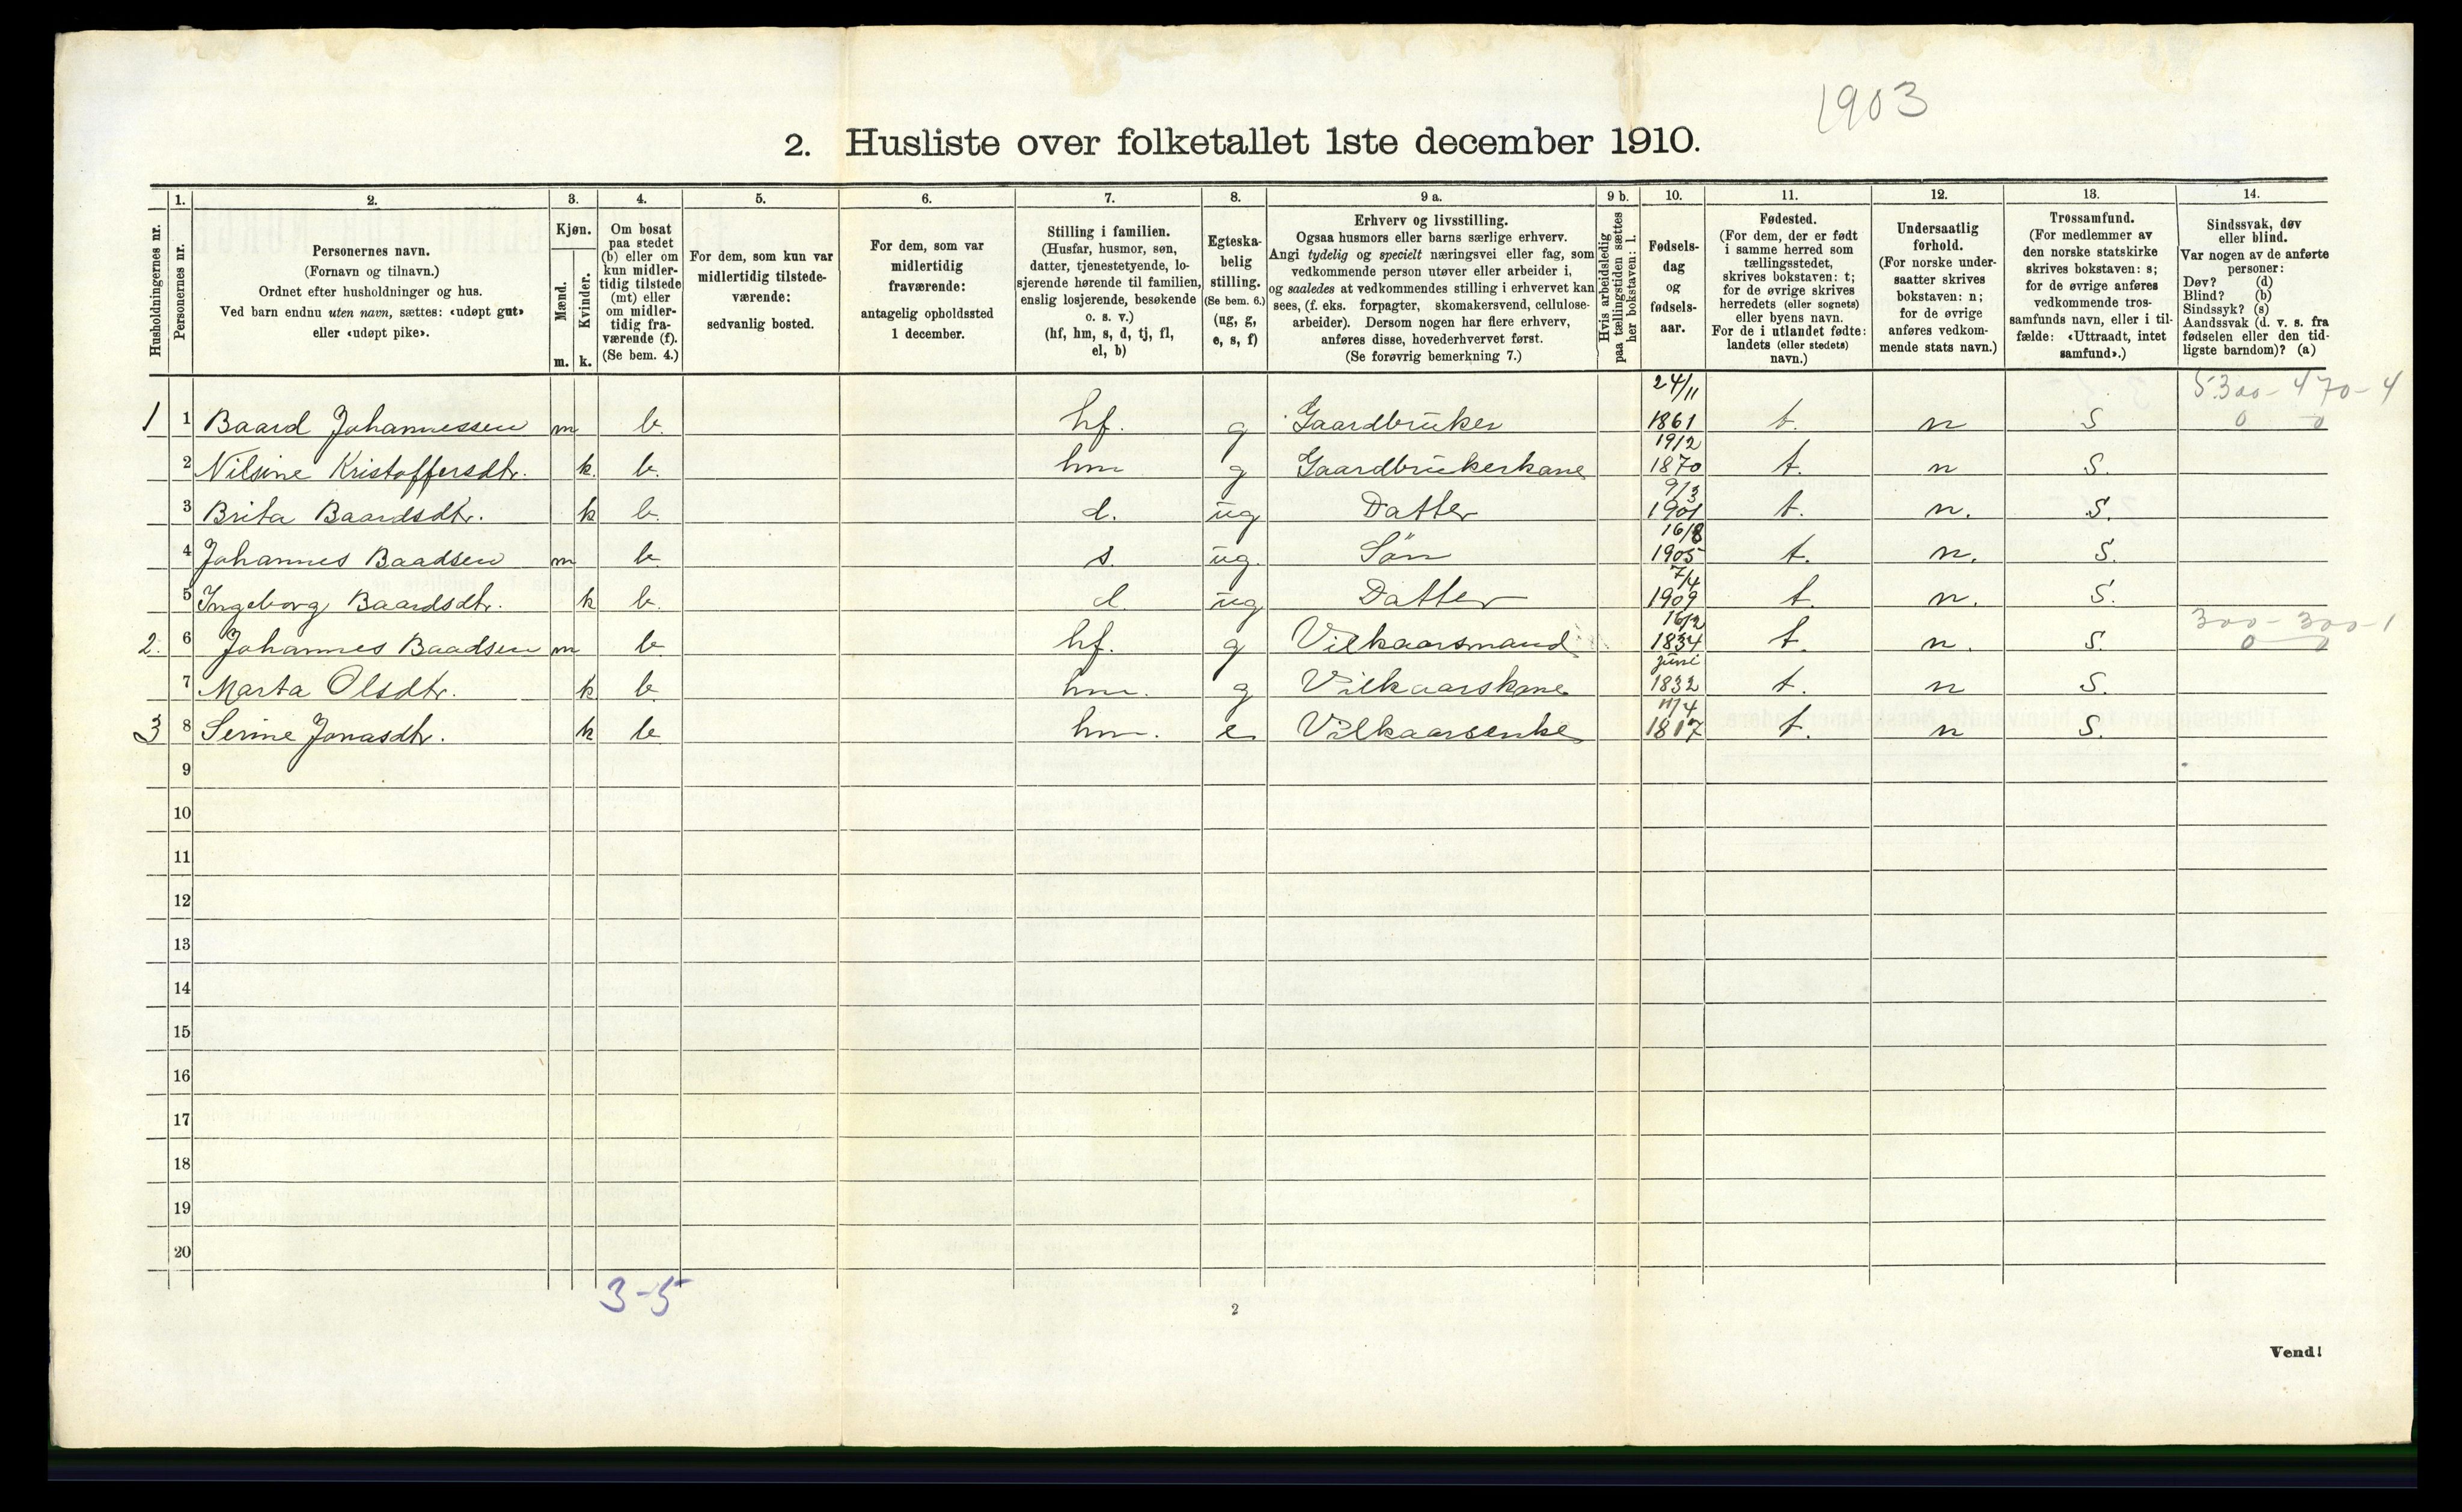 1903
2. Husliste over folketallet 1ste december 1910.
Husholdningernes nr.
1. Personernes nr.
2. Personernes navn. (Fornavn og tilnavn.) Ordnet efter husholdninger og hus. Ved barn endnu uten navn, sættes: «udøpt gut» eller «udøpt pike».
3. Kjøn. Mænd. m. Kvinder. k.
4. Om bosat paa stedet (b) eller om kun midlertidig tilstede (mt) eller om midlertidig fraværende (f). (Se bem. 4.)
5. For dem, som kun var midlertidig tilstedeværende: sedvanlig bosted.
6. For dem, som var midlertidig fraværende: antagelig opholdssted 1 december.
7. Stilling i familien. (Husfar, husmor, søn, datter, tjenestetyende, losjerende hørende til familien, enslig losjerende, besøkende o. s. v.) (hf, hm, s, d, tj, fl, el, b)
8. Egteskabelig stilling. (Se bem. 6.) (ug, g, e, s, f)
9 a. Erhverv og livsstilling. Ogsaa husmors eller barns særlige erhverv. Angi tydelig og specielt næringsvei eller fag, som vedkommende person utøver eller arbeider i, og saaledes at vedkommendes stilling i erhvervet kan sees, (f. eks. forpagter, skomakersvend, cellulosearbeider). Dersom nogen har flere erhverv, anføres disse, hovederhvervet først. (Se forøvrig bemerkning 7.)
9 b. Hvis arbeidsledig paa tællingstiden sættes her bokstaven: l.
10. Fødselsdag og fødselsaar.
11. Fødested. (For dem, der er født i samme herred som tællingsstedet, skrives bokstaven: t; for de øvrige skrives herredets (eller sognets) eller byens navn. For de i utlandet fødte: landets (eller stedets) navn.)
12. Undersaatlig forhold. (For norske undersaatter skrives bokstaven: n; for de øvrige anføres vedkommende stats navn.)
13. Trossamfund. (For medlemmer av den norske statskirke skrives bokstaven: s; for de øvrige anføres vedkommende trossamfunds navn, eller i tilfælde: «Uttraadt, intet samfund».)
14. Sindssvak, døv eller blind. Var nogen av de anførte personer: Døv? (d) Blind? (b) Sindssyk? (s) Aandssvak (d. v. s. fra fødselen eller den tidligste barndom)? (a)
1 1 Baard Johannessen m b. hf. g Gaardbruker 24/11 1861 t. n S 5300-470-4 0 0
2 Nilsine Kristoffersdtr. k. b. hm g Gaardbrukerkone 19/2 1870 t. n S.
3 Brita Baardsdtr. k b. d. ug Datter 9/3 1901 t. n. S.
4 Johannes Baadsen m b s. ug. Søn 16/8 1905 t. n. S.
5 Ingeborg Baardsdtr. k b. d. ug Datter 7/4 1909 t. n. S.
2. 6 Johannes Baadsen m b hf. g Vilkaarsmand 16/2 1834 t. n. S. 300-300-1 0 0
7 Marta Olsdtr. k b hm. g Vilkaarskone juni 1832 t. n S.
3 8 Serine Jonasdtr. k b hm. e Vilkaarsenke 11/4 1817 t. n S.
9
10
11
12
13
14
15
16
17
18
19
20
3-5
2
Vend!